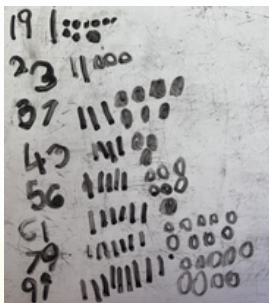 19
23
37
43
56
61
79
97